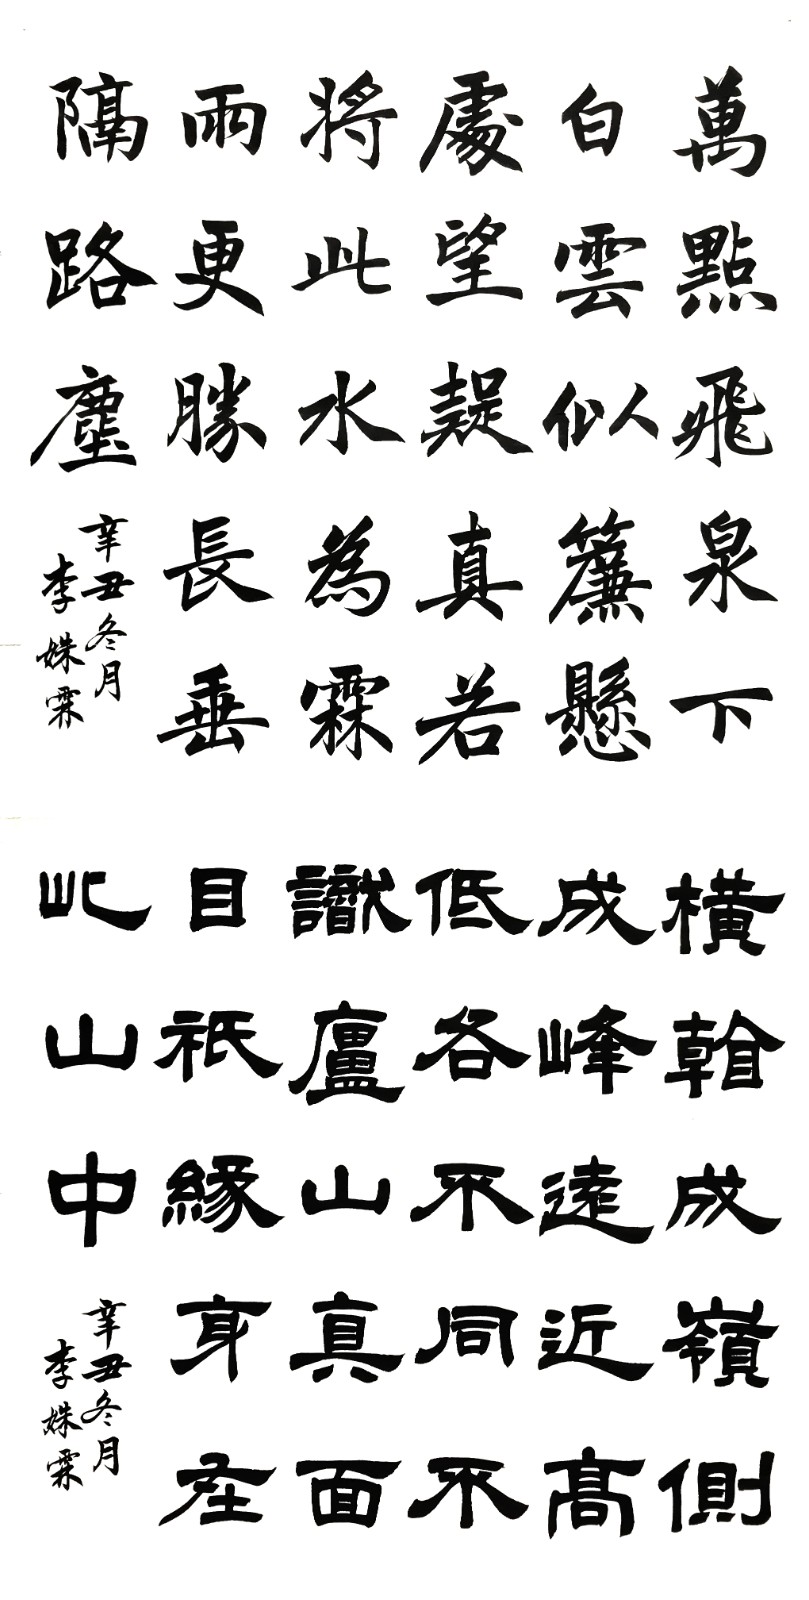 萬點飛泉下
白雲似簾懸
處望疑真若
將此水為霖
雨更勝長垂
隔路塵
辛丑冬月
李姝霖
橫看成嶺側
成峰遠近高
低各不同不
識廬山真面
目祇緣身在
此山中
辛丑冬月
李姝霖